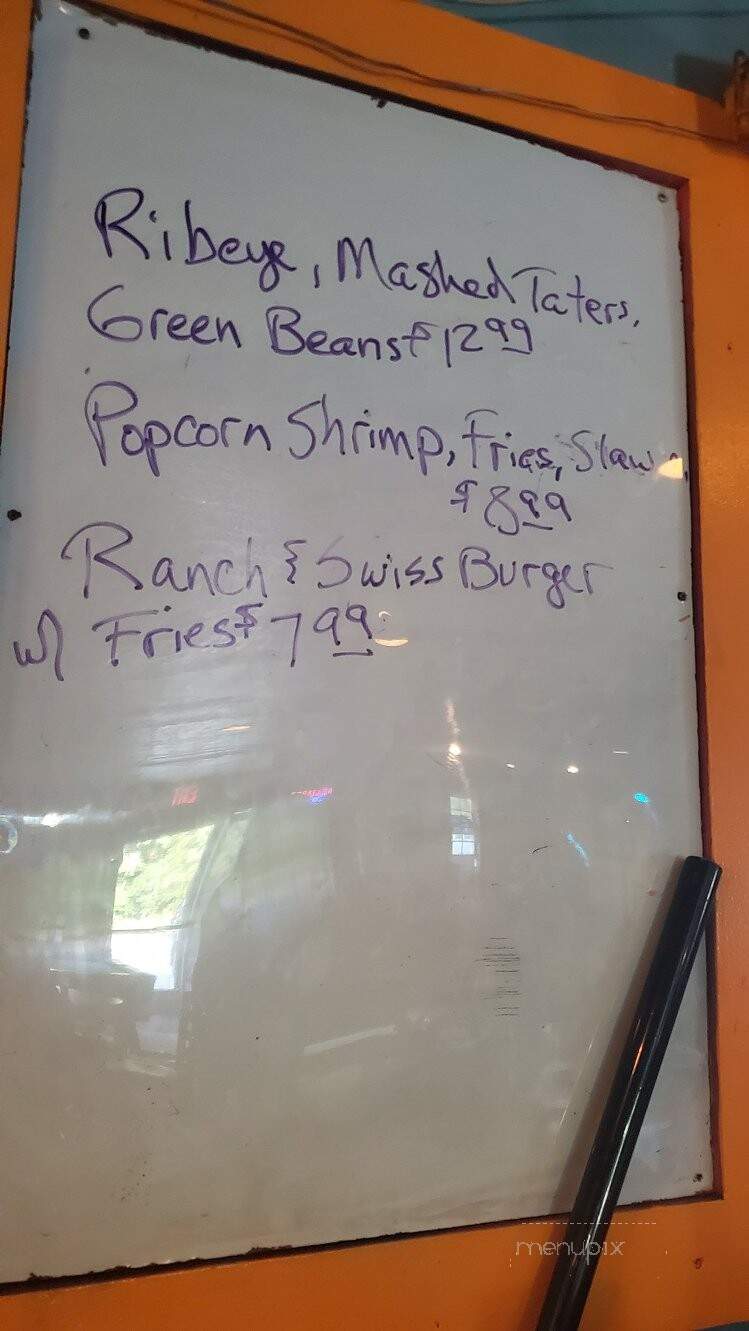 Ribeye, Mashed Taters,
Green Beans $12 99
Popcorn Shrimp, Fries, Slaw
$8 99
Ranch & Swiss Burger
w/ Fries $7 99
menupix